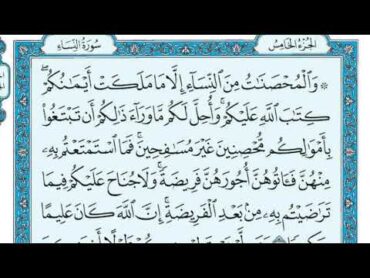 سُورَةُ النِّسَاءِ
الجُزْءُ الخَامِسُ
۞ وَالْمُحْصَنَاتُ مِنَ النِّسَاءِ إِلَّا مَا مَلَكَتْ أَيْمَانُكُمْ ۖ
كِتَابَ اللَّهِ عَلَيْكُمْ ۚ وَأُحِلَّ لَكُم مَّا وَرَاءَ ذَٰلِكُمْ أَن تَبْتَغُوا
بِأَمْوَالِكُم مُّحْصِنِينَ غَيْرَ مُسَافِحِينَ ۚ فَمَا اسْتَمْتَعْتُم بِهِ
مِنْهُنَّ فَآتُوهُنَّ أُجُورَهُنَّ فَرِيضَةً ۚ وَلَا جُنَاحَ عَلَيْكُمْ فِيمَا
تَرَاضَيْتُم بِهِ مِن بَعْدِ الْفَرِيضَةِ ۚ إِنَّ اللَّهَ كَانَ عَلِيمًا